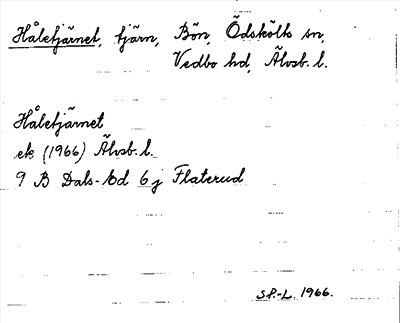 Håletjärnet, tjärn, Bön, Ödskölts sn,
Vedbo hd, Älvsb. l.
Håletjärnet
ek (1966) Älvsb. l.
9 B Dals-Ed 6 j Flaterud
SP.-L. 1966.